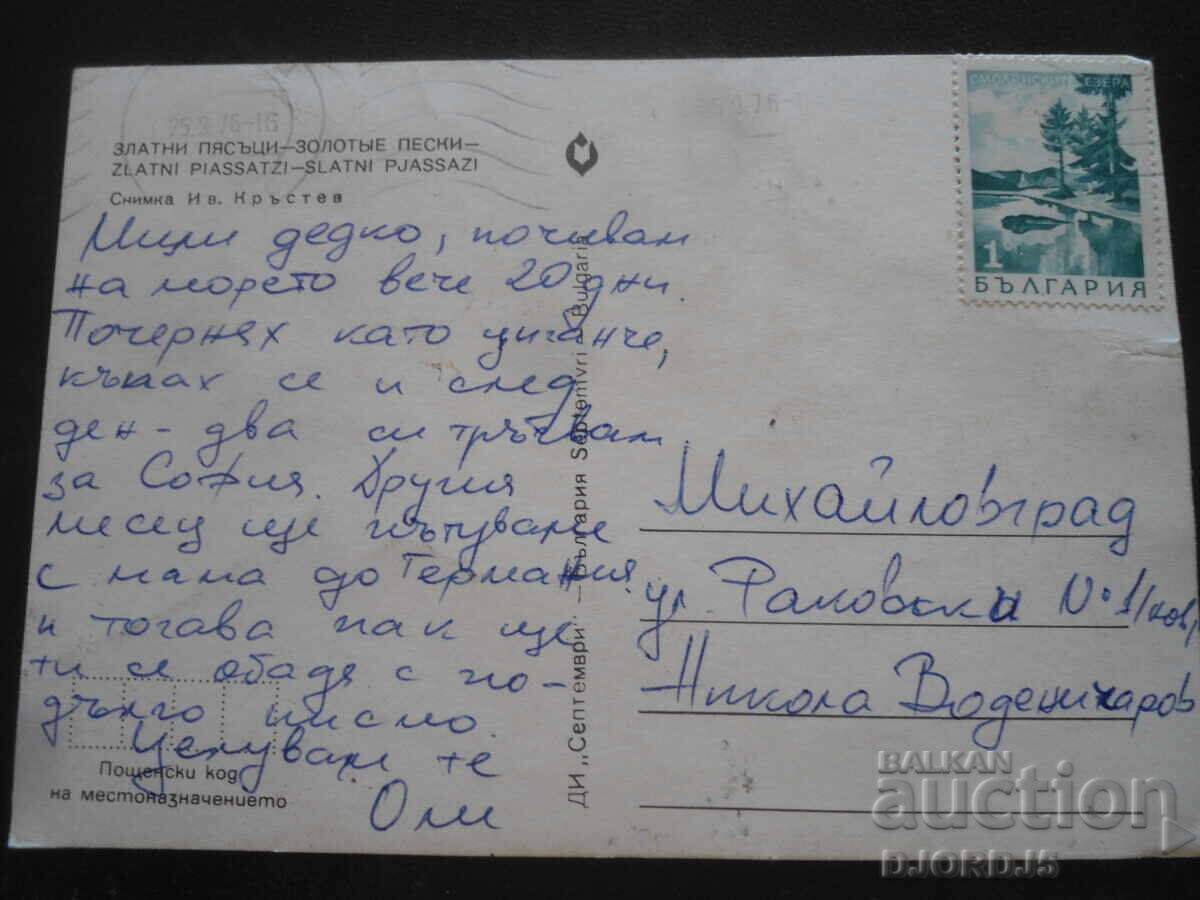 25.9.76-16
25.9.76-1
ЗЛАТНИ ПЯСЪЦИ—ЗОЛОТЫЕ ПЕСКИ—
ZLATNI PIASSATZI—SLATNI PJASSAZI
Снимка Ив. Кръстев
Мили дедко, почивам
на морето вече 20 дни.
Почернях като циганче,
къпах се и след
ден-два си тръгвам
за София. Другия
месец ще пътуваме
с мама до Германия
и тогава пак ще
ти се обадя с по-
дълго писмо.
Целувам те
Оли
Пощенски код
на местоназначението
ДИ „Септември" — България Septemvri - Bulgaria
СМОЛЯНСКИТЕ ЕЗЕРА
1
БЪЛГАРИЯ
Михайловград
ул. Раковски № 1
Никола Воденичаров
BALKAN
auction
DJORDJ5